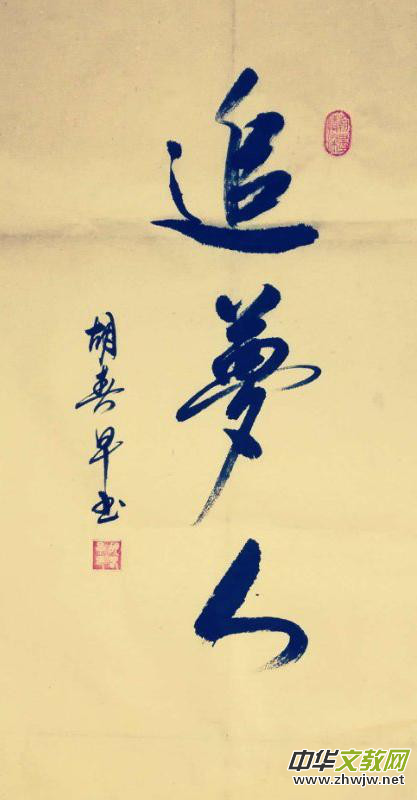 追夢人
胡春早书
中华文教网
www.zhwjw.net